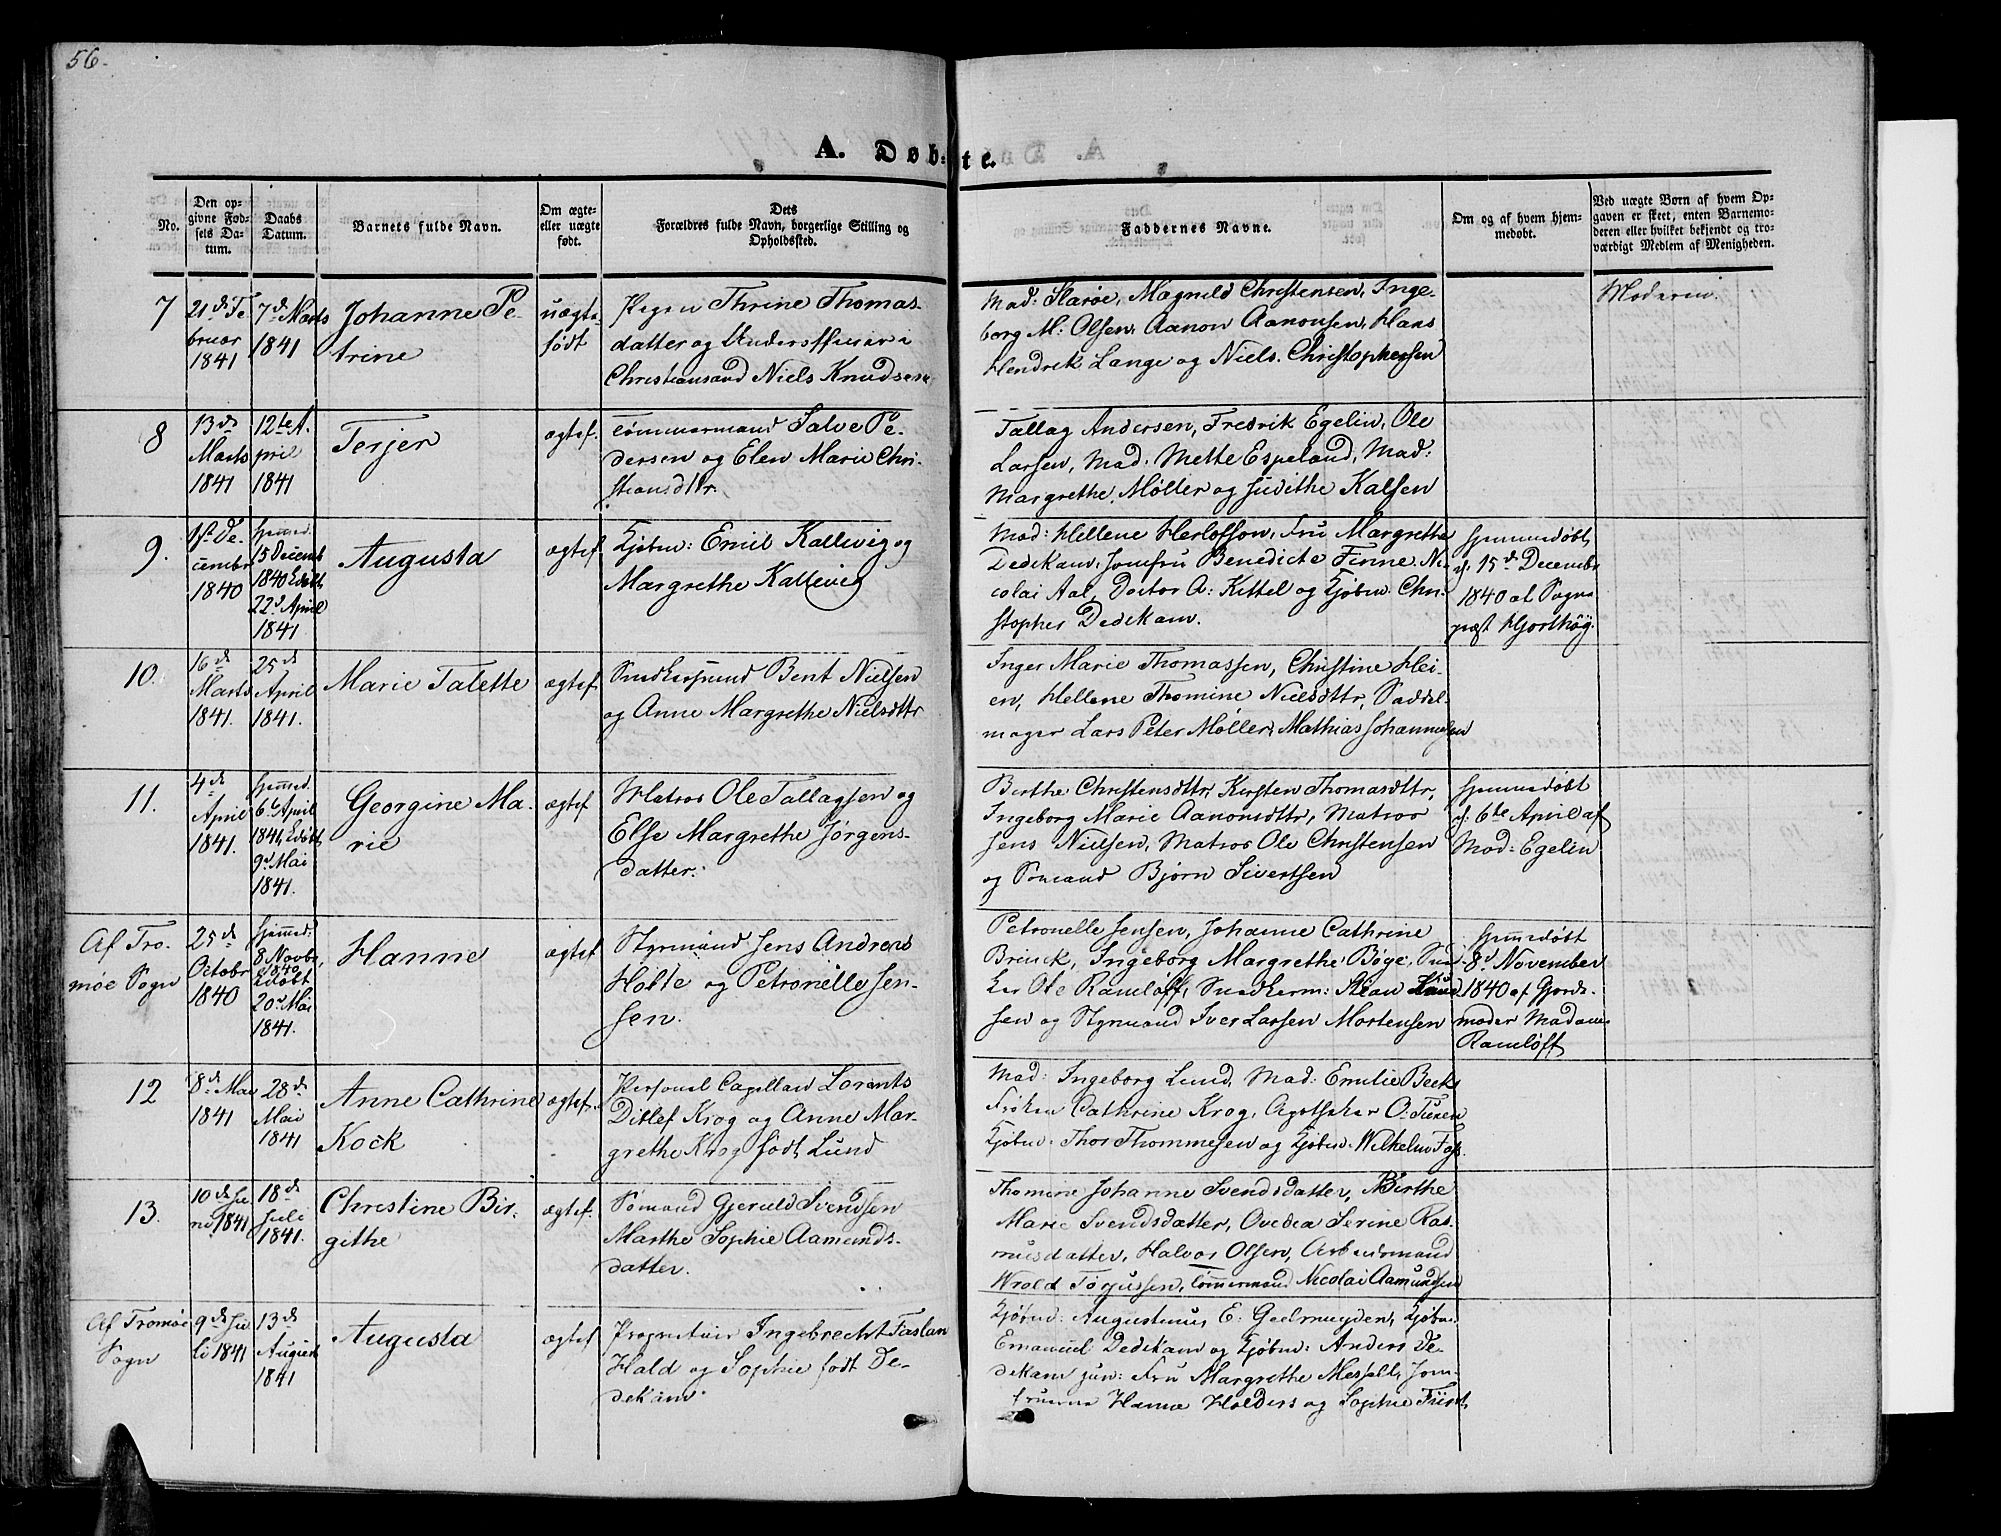 56.
A. Døb- te.
No.
Den op-
givne Fød-
sels Da-
tum.
Daabs
Datum.
Barnets fulde Navn.
Om ægte-
eller uægte
født.
Dets
Forældres fulde Navn, borgerlige Stilling og
Opholdssted.
Faddernes Navne.
Om og af hvem hjem-
medøbt.
Ved uægte Børn af hvem Op-
gaven er skeet, enten Barnemo-
deren eller hvilket bekjendt og tro-
værdigt Medlem af Menigheden.
7
21de Fe
bruar
1841
7de Marts
1841
Johanne Pe-
trine
uægte
født
Pigen Thrine Thomas-
datter og Underofficier i
Christiansand Niels Knudsen
Mad: Skarøe, Magnild Christensen, Inge-
borg M: Olsen, Aanon Aanonsen, Hans
Hendrik Lange og Niels Christophersen
Moderen.
8
13de
Marts
1841
12te A-
pril
1841
Terjer
ægtef.
Tømmermand Salve Pe-
dersen og Elen Marie Chri-
stiansdttr.
Tallag Andersen, Fredrik Egelin, Ole
Larsen, Mad: Mette Espeland, Mad:
Margrethe Møller og Judithe Kalsen
9.
1ste De-
cembr
1840
Hjemmed.
15 Decemb
1840 Edøbt
22d April
1841.
Augusta
ægtef
Kjøbm: Emil Kallevig og
Margrethe Kallevig
Mad: Hellene Herlofson, Fru Margrethe
Dedekam, Jomfru Benedicte Finne, Ni-
colai Aal, Doctor A: Kittel og Kjøbm: Chri-
stopher Dedekam.
Hjemmedøbt
d. 15de December
1840 af Sogne
præst Hjorthøy.
10.
16de
Marts
1841.
25de
April
1841.
Marie Talette
ægtef.
Snedkersvend Bent Nielsen
og Anne Margrethe Nielsdttr
Inger Marie Thomassen, Christine Hei-
en, Hellene Thomine Nielsdttr, Saddel-
mager Lars Peter Møller, Mathias Johannesen
11.
4de
April
1841.
Hjemmed.
6te April
1841, Edøbt,
9d Mai
1841.
Georgine Ma-
rie
ægtef.
Matros Ole Tallagsen og
Else Margrethe Jørgens-
datter.
Berthe Christensdttr, Kirsten Thomasdttr,
Ingeborg Marie Aanonsdttr, Matros
Jens Nielsen, Matros Ole Christensen
og Sømand Bjørn Sivertsen
Hjemmedøbt
d. 6te April af
Mad: Egelin
Af Tro-
møe Sogn
25de
Octobr
1840
Hjemmed:
8 Novbr.
1840
Edøbt
20d Mai
1841.
Hanne
ægtef.
Styrmand Jens Andreas
Holte og Petronelle Jen-
sen.
Petronelle Jensen, Johanne Cathrine
Brinck, Ingeborg Margrethe Bøge, Sned-
ker Ole Ramløff, Snedkerm: Stean Knud-
sen og Styrmand Iver Larsen Mortensen
Hjemmedøbt
8d November
1840 af Gjorde-
moder Madame
Ramløff
12
8de Mai
1841
28de
Mai
1841
Anne Cathrine
Kock
ægtef.
Personel Capellan Lorents
Ditlef Krog og Anne Mar-
grethe Krog født Lund
Mad: Ingeborg Lund, Mad: Emilie Beck
Frøken Cathrine Krog, Apotheker O: Tuxen
Kjøbm: Thor Thommesen og Kjøbm: Wilhelm Foss.
13.
10de Ju
ni 1841
18de
Juli
1841.
Christine Bir-
githe
ægtef.
Sømand Gjeruld Svendsen
Marthe Sophie Aamunds-
datter.
Thomine Johanne Svendsdatter, Birthe
Marie Svendsdatter, Ovedea Serine Ras-
musdatter, Halvor Olsen, Arbeidsmand
Wrold Torjussen, Tømmermand Nicolai Aamundsen
Af Tromøe
Sogn
9de Ju
li 1841
13de
August
1841
Augusta
ægtef
Proprietair Ingebrecht Faslan
Hald og Sophie født De-
dekam.
Kjøbmd: Augustinus E: Geelmuyden, Kjøbm:
Emanuel Dedekam og Kjøbm: Anders De-
dekam jun: Fru Margrethe Messelt, Jom-
fruerne Hanne Holders og Sophie Fürst,